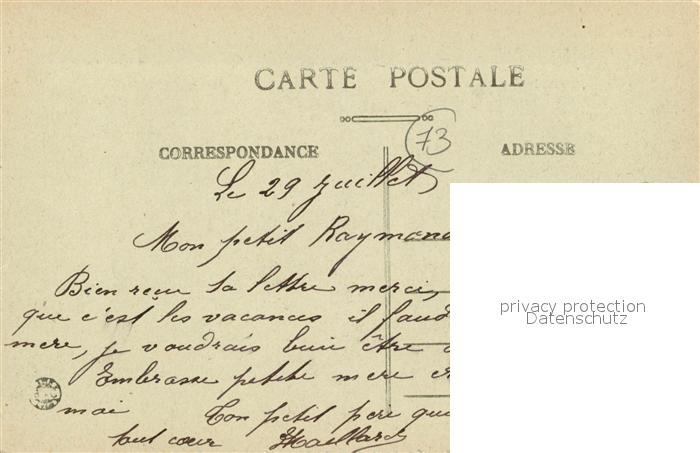 CARTE POSTALE
73
CORRESPONDANCE
ADRESSE
Le 29 Juillet
Mon petit Raymond
Bien reçu ta lettre merci,
que c'est les vacances il faud
mere, je voudrais bien être
Embrasse petite mere et
moi Ton petit pere qui
tout cœur
privacy protection
Datenschutz